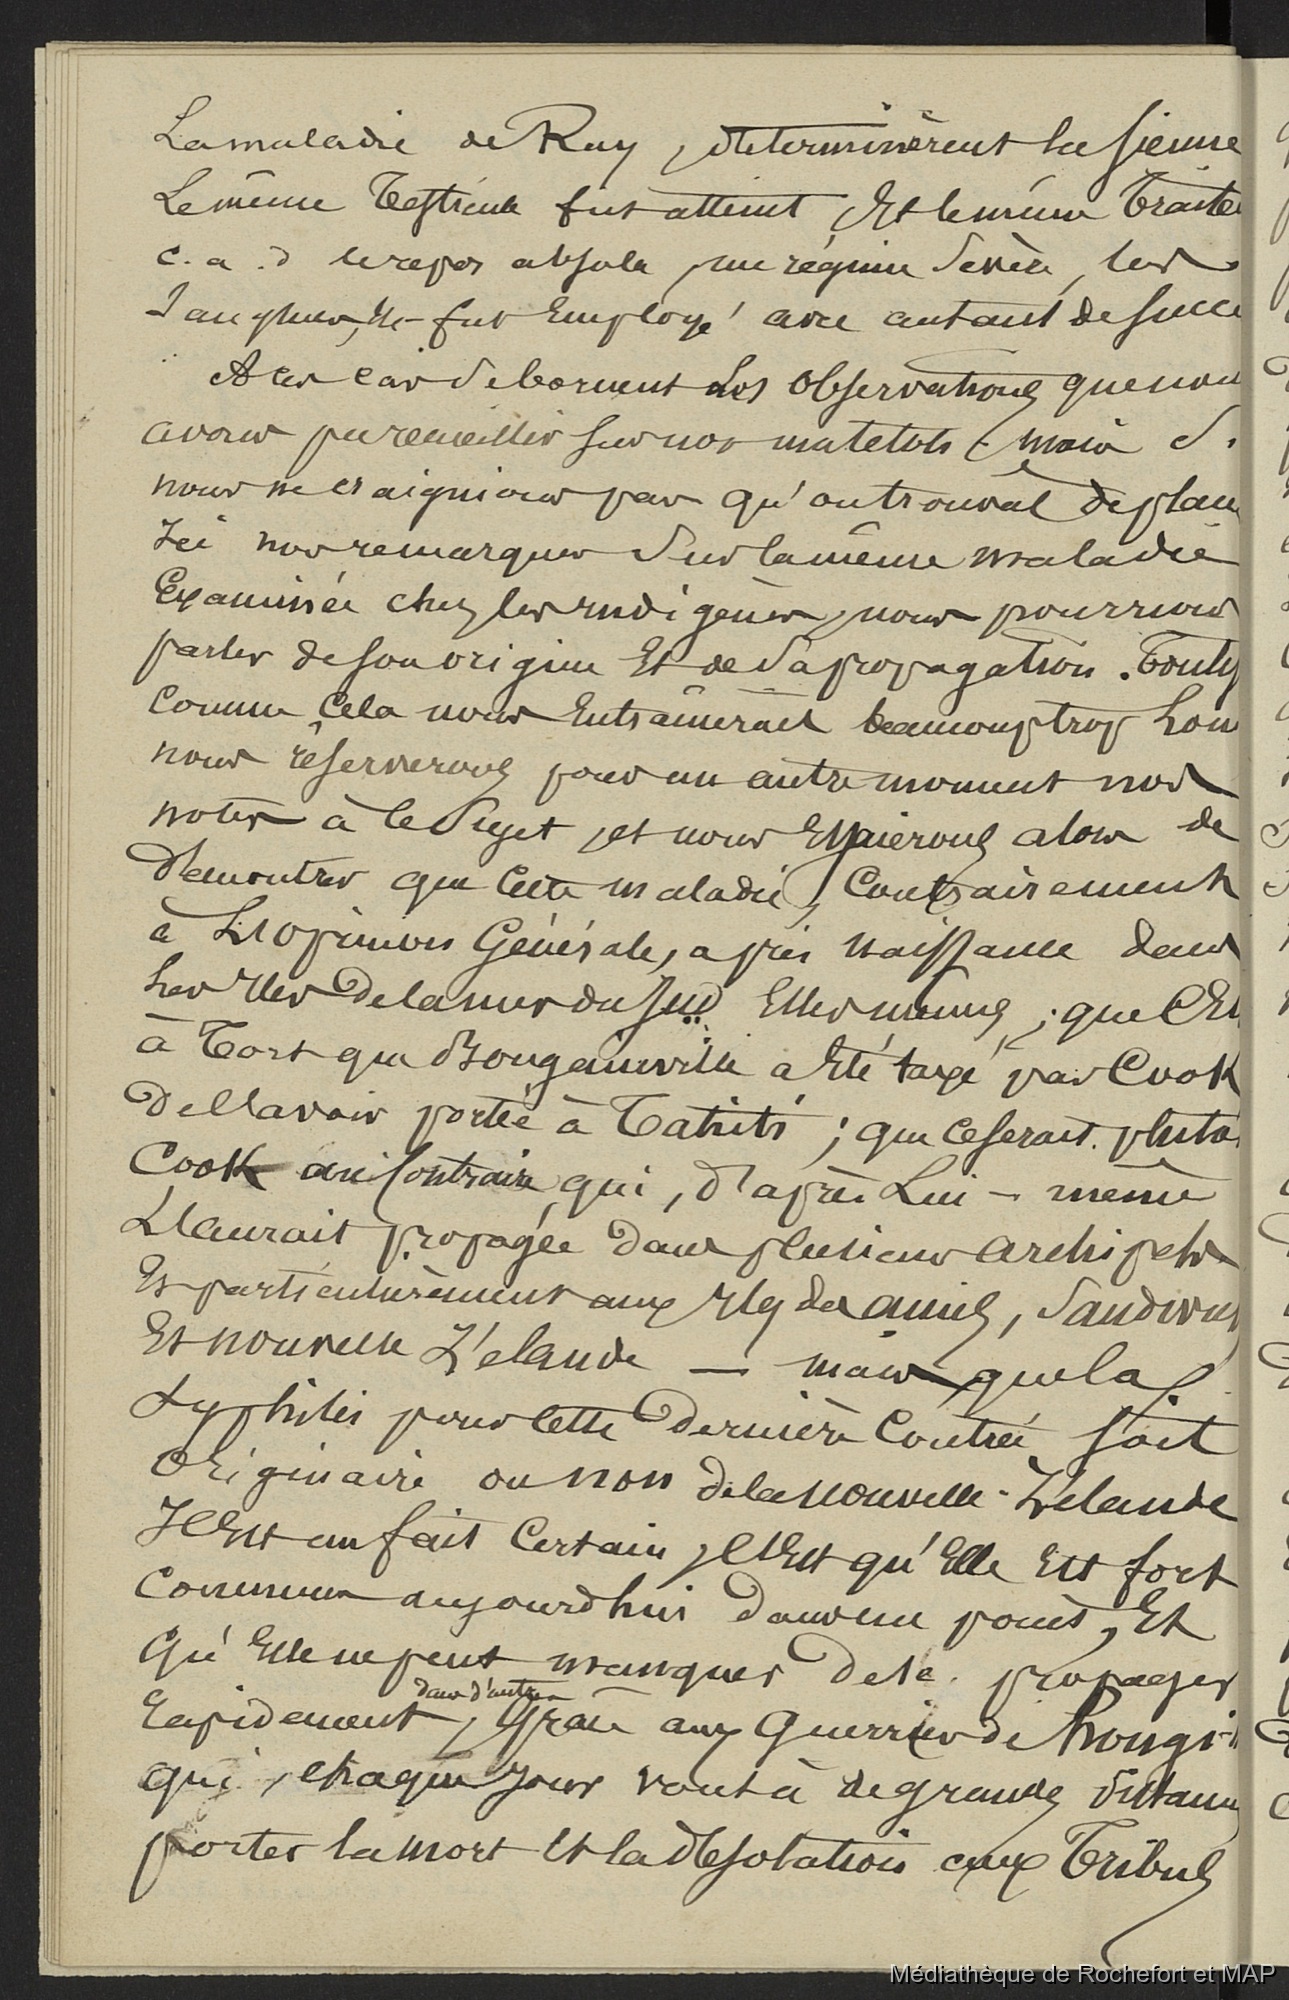 La maladie de Ruy, déterminèrent la sienne
Le même Testicule fut atteint, Et le même Traite
c. a. d le repos absolu, un régime sévère, les
Sangsues, &c fut Employé avec autant de succe
A ces cas se bornent les Observations que nou
avons pu recueillir sur nos matelots, mais si
nous ne craignions pas qu'on trouvat déplacé
Ici nos remarques sur la même maladie
Examinée chez les indigènes, nous pourrions
parler de son origine Et de sa propagation. Toutef
comme cela nous Entraînerait beaucoup trop Loin
nous réserverons pour un autre moment nos
notes à ce sujet, et nous Essaierons alors de
démontrer que cette maladie, Contrairement
à L'opinion Générale, a pris naissance dans
Les Iles de la mer du Sud Elles mêmes; que C'Es
à Tort que Bougainville a Eté taxé par Cook
De L'avoir portée à Tahiti; que ce serait plutô
Cook au Contraire qui, d'après Lui-même
L'aurait propagée dans plusieurs archipels
Et particulièrement aux Iles des amis, Sandwich
Et nouvelle Zélande — mais que la
Syphilis pour cette Dernière Contrée soit
Originaire ou non de la nouvelle-Zélande
Il Est un fait Certain, C'Est qu'Elle Est fort
Commune aujourd'hui dans un point, Et
Qu'Elle ne peut manquer de se propager
dans d'autres
Rapidement, Grâce aux Guerriers de Shongi
qui, chaque jour vont à de grandes distance
porter la mort Et la désolation aux Tribus
Médiathèque de Rochefort et MAP